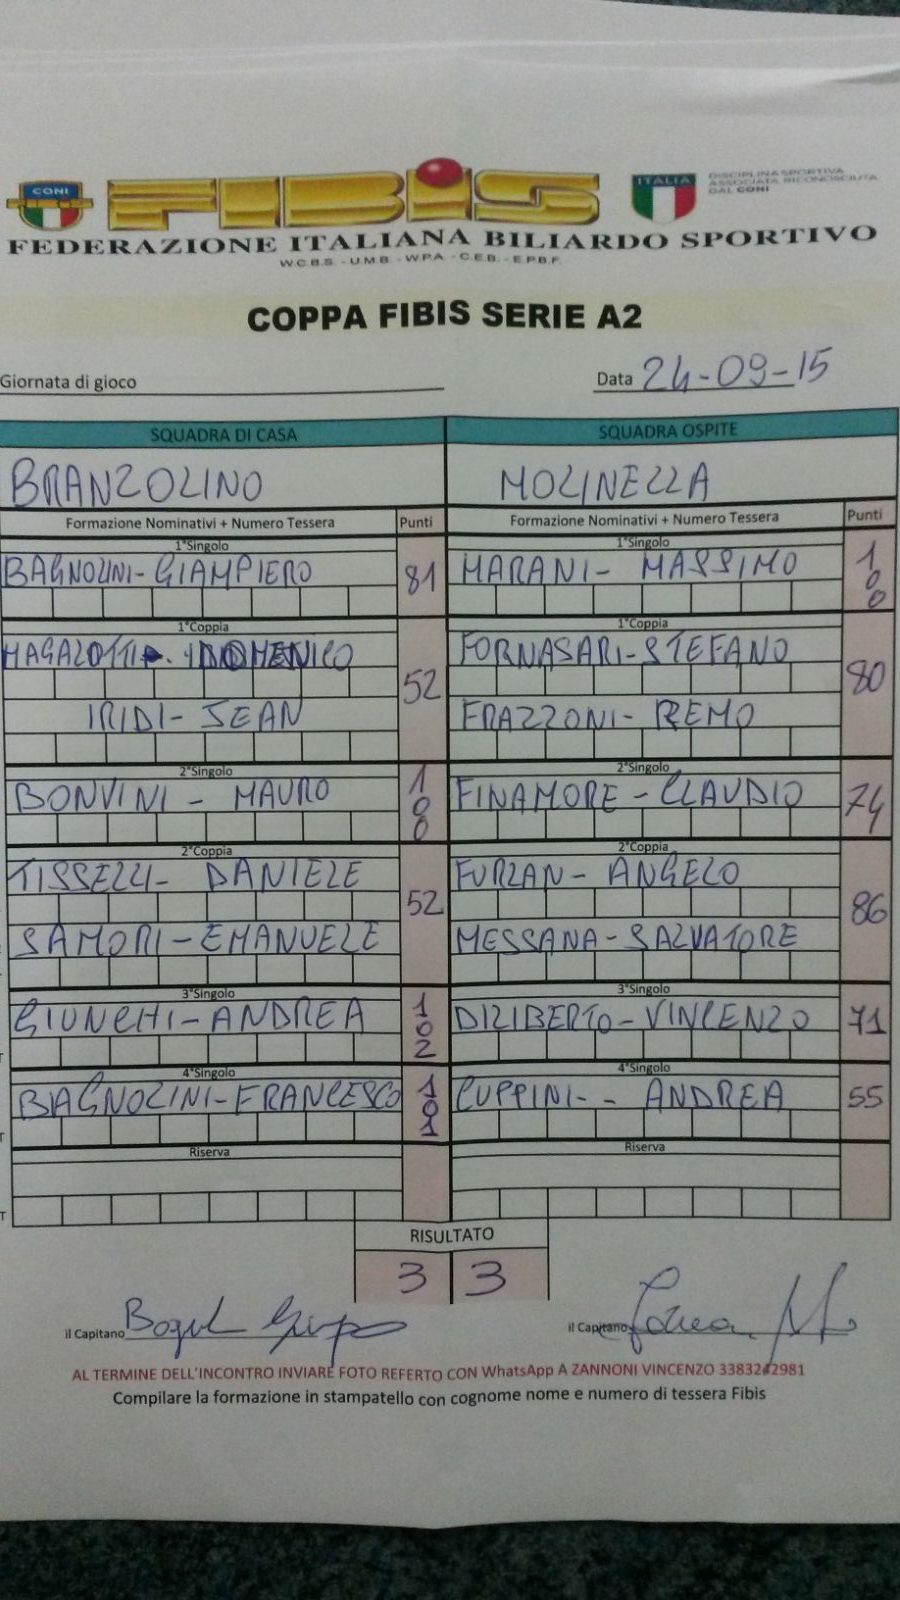 CONI
FIBIS
ITALIA
DISCIPLINA SPORTIVA
ASSOCIATA RICONOSCIUTA
DAL CONI
FEDERAZIONE ITALIANA BILIARDO SPORTIVO
W.C.B.S. - U.M.B. - W.P.A. - C.E.B. - E.P.B.F.
COPPA FIBIS SERIE A2
Giornata di gioco Data 24-09-15
SQUADRA DI CASA SQUADRA OSPITE
BRANZOLINO MOLINELLA
Formazione Nominativi + Numero Tessera Punti Formazione Nominativi + Numero Tessera Punti
1°Singolo 1°Singolo
BAGNOLINI-GIAMPIERO 81 MARANI- MASSIMO 100
1°Coppia 1°Coppia
MAGALOTTI DOMENICO 52 FORNASARI-STEFANO 80
IRIDI- JEAN FRAZZONI- REMO
2°Singolo 2°Singolo
BONVINI - MAURO 100 FINAMORE - CLAUDIO 74
2°Coppia 2°Coppia
TISSELLI- DANIELE 52 FURLAN- ANGELO 86
SAMORI-EMANUELE MESSANA-SALVATORE
3°Singolo 3°Singolo
GIUNCHI-ANDREA 102 DILIBERTO-VINCENZO 71
4°Singolo 4°Singolo
BAGNOLINI-FRANCESCO 101 CUPPINI-- ANDREA 55
Riserva Riserva
RISULTATO
3 3
il Capitano il Capitano
AL TERMINE DELL'INCONTRO INVIARE FOTO REFERTO CON WhatsApp A ZANNONI VINCENZO 3383242981
Compilare la formazione in stampatello con cognome nome e numero di tessera Fibis